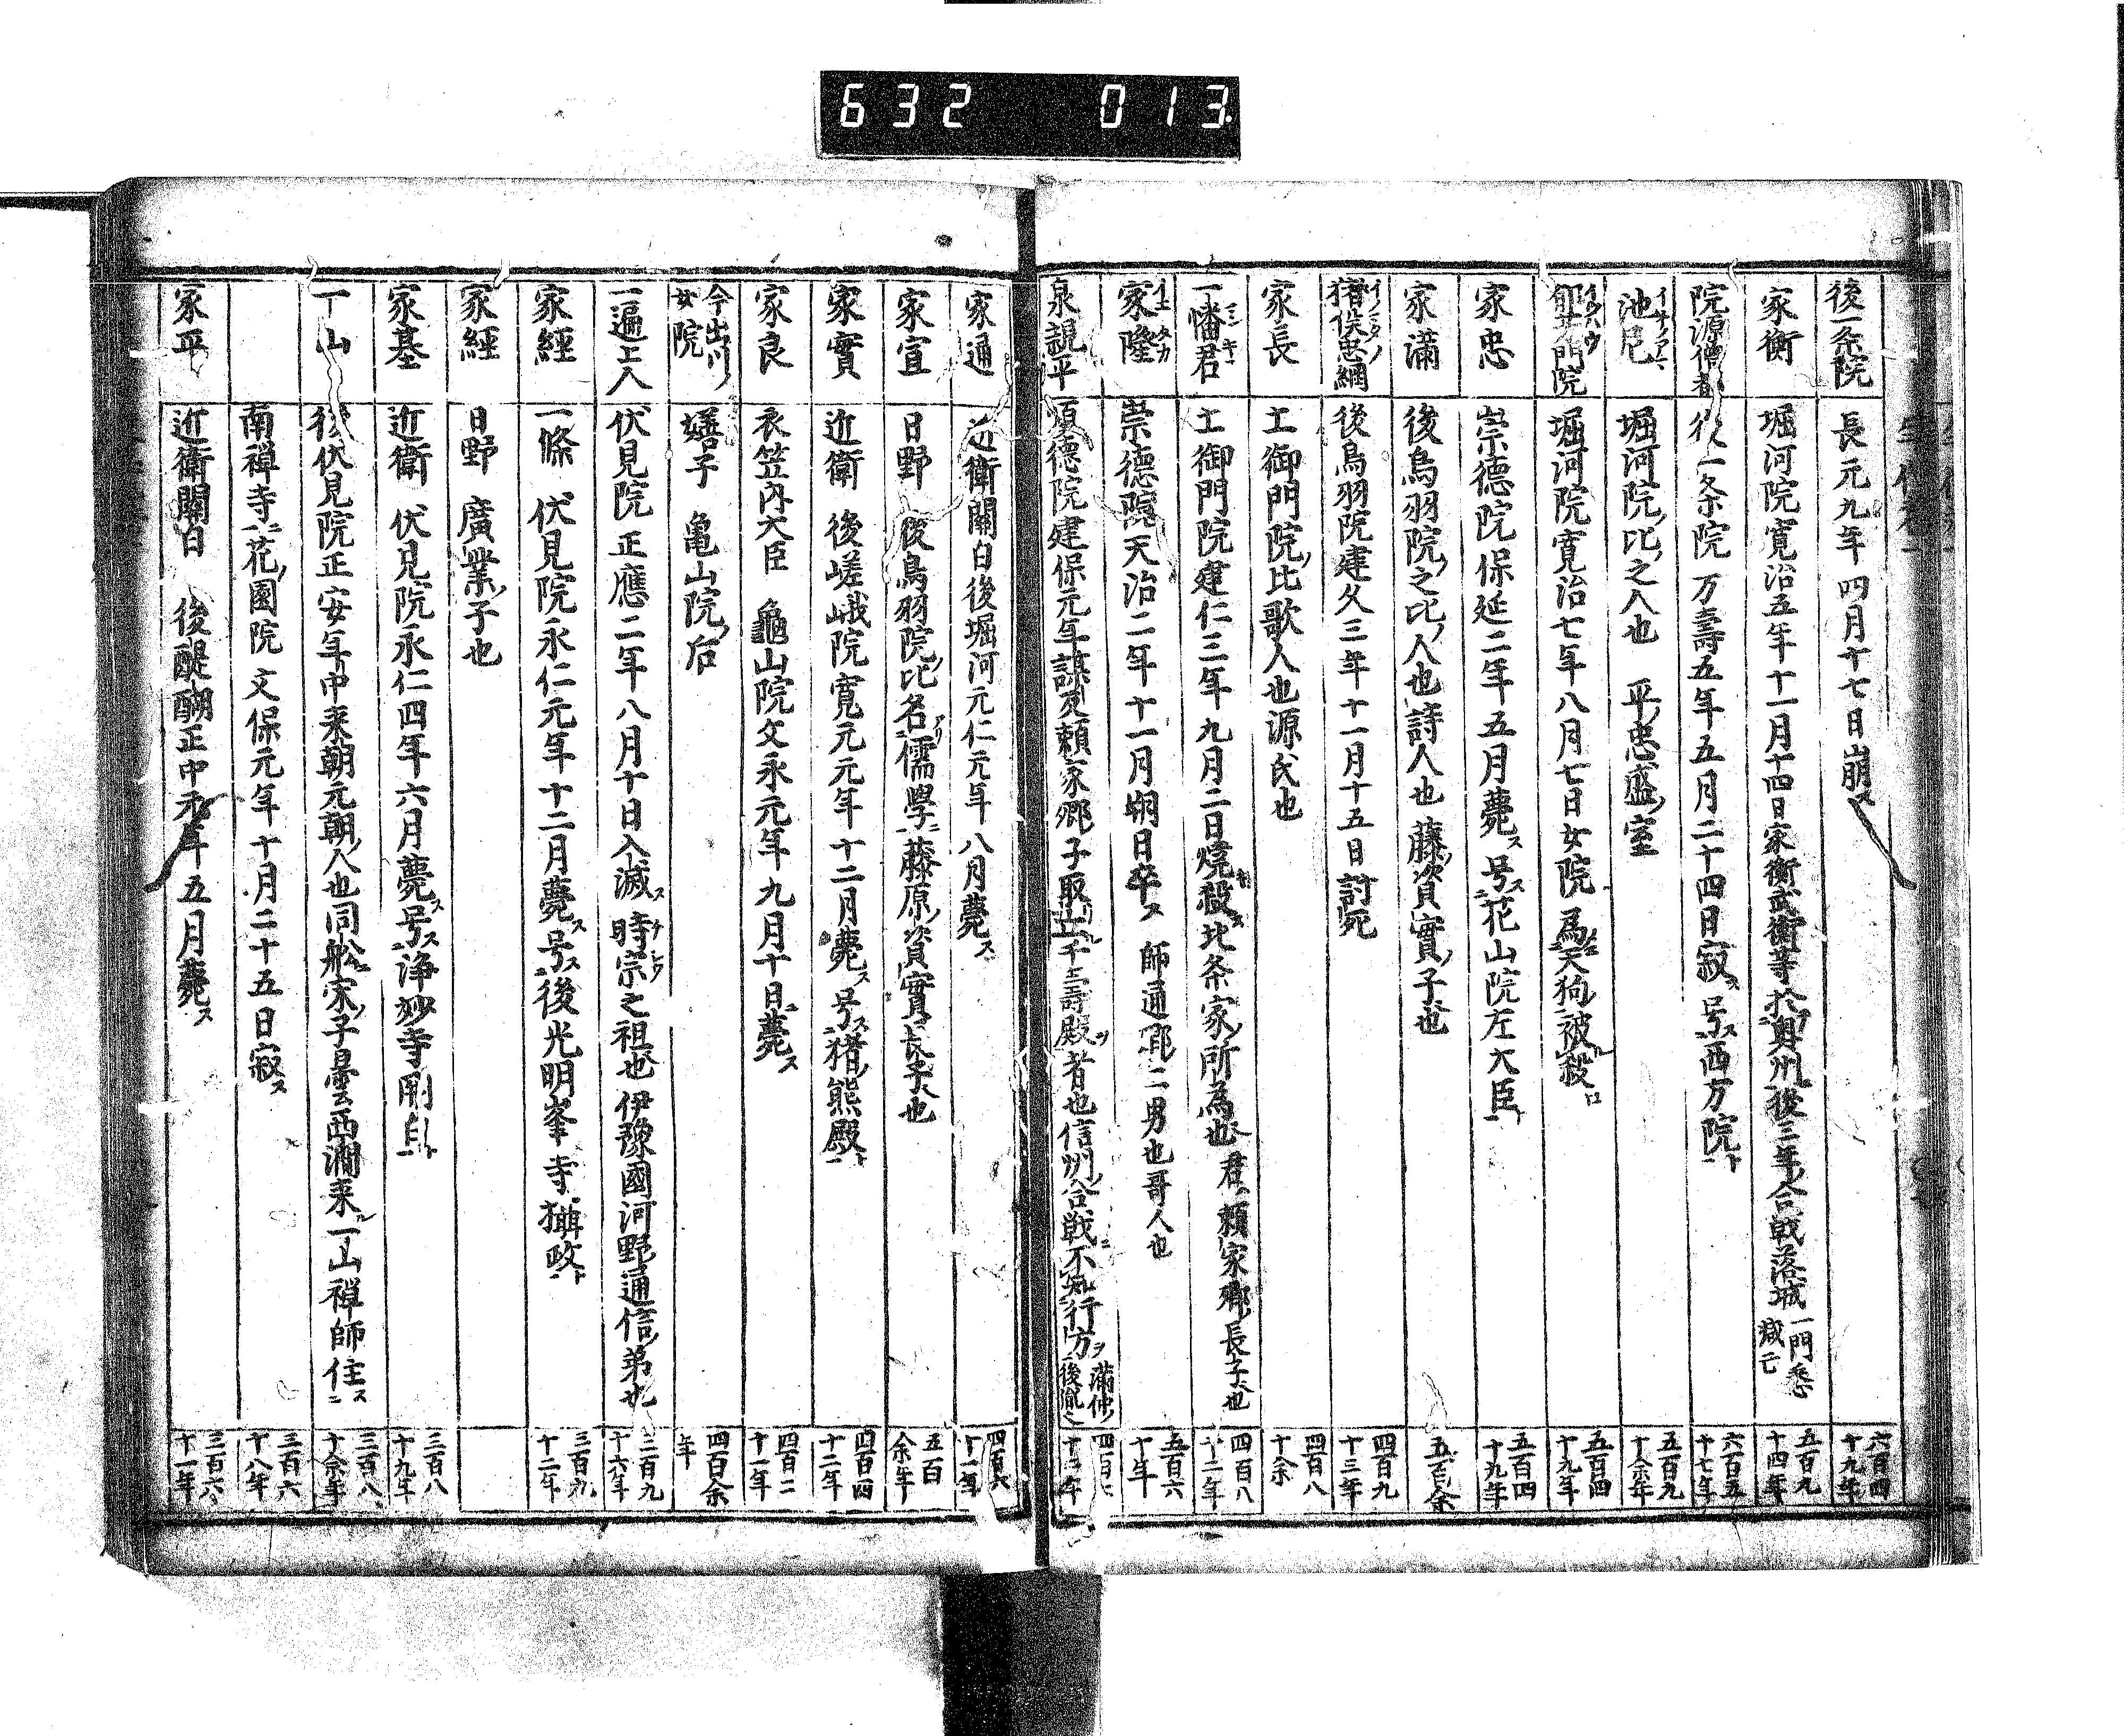 632 013
後一条院 長元九年四月十七日崩ス 六百四十九年
家衡 堀河院寛治五年十一月十四日家衡武衡等於奥州後三年合戦落城一門悉滅亡 五百九十四年
院源僧都 後一条院 万壽五年五月二十四日寂ス 号ス西方院ト 六百五十七年
池尼 堀河院ノ比ノ之人也 平ノ忠盛ノ室 五百九十余年
郁芳門院 堀河院寛治七年八月七日女院為天狗被殺 五百四十九年
家忠 崇徳院保延二年五月薨ス 号ス花山院左大臣ト 五百四十九年
家滿 後鳥羽院ノ之比ノ人也詩人也 藤ノ資實ノ子也 五百余
猪俣忠綱 後鳥羽院建久三年十一月十五日討死 四百九十三年
家長 土御門院ノ比歌人也源氏也 四百八十余
一幡君 土御門院建仁三年九月二日燒殺北条家ノ所為也 君ハ頼家卿ノ長子也 四百八十二年
家隆 崇徳院天治二年十一月朔日卒ス 師通卿二男也哥人也 五百六十年
泉親平 順徳院建保元年謀反頼家卿ノ子取立千壽殿ヲ者也信州ノ合戦ニ不知行方ヲ 滿仲ノ後胤也
家通 近衛關白後堀河元仁元年八月薨ス 四百六十一年
家宣 日野 後鳥羽院ノ比名アリ儒學ニ藤原ノ資實ノ長子也 五百余年
家實 近衛 後嵯峨院寛元元年十二月薨ス 号ス猪ノ熊殿ト 四百四十二年
家良 衣笠内大臣 龜山院文永元年九月十日薨ス 四百二十一年
今出川ノ女院 嬉子 亀山院ノ后 四百余年
一遍上人 伏見院正應二年八月十日入滅ス 時宗之祖也 伊豫國河野通信ノ弟也 三百九十六年
家經 一條 伏見院永仁元年十二月薨ス号ス後光明峯寺攝政ト 三百九十二年
家經 日野 廣業ノ子也
家基 近衛 伏見院永仁四年六月薨ス号ス浄妙寺關白ト 三百八十九年
一山 後伏見院正安年中来朝元朝ノ人也同船ニ宋ノ子曇西澗来ル一山禅師住ス 三百八十余年
南禅寺ニ花ノ園院 文保元年十月二十五日寂ス 三百六十八年
家平 近衛關白 後醍醐正中元年五月薨ス 三百六十一年